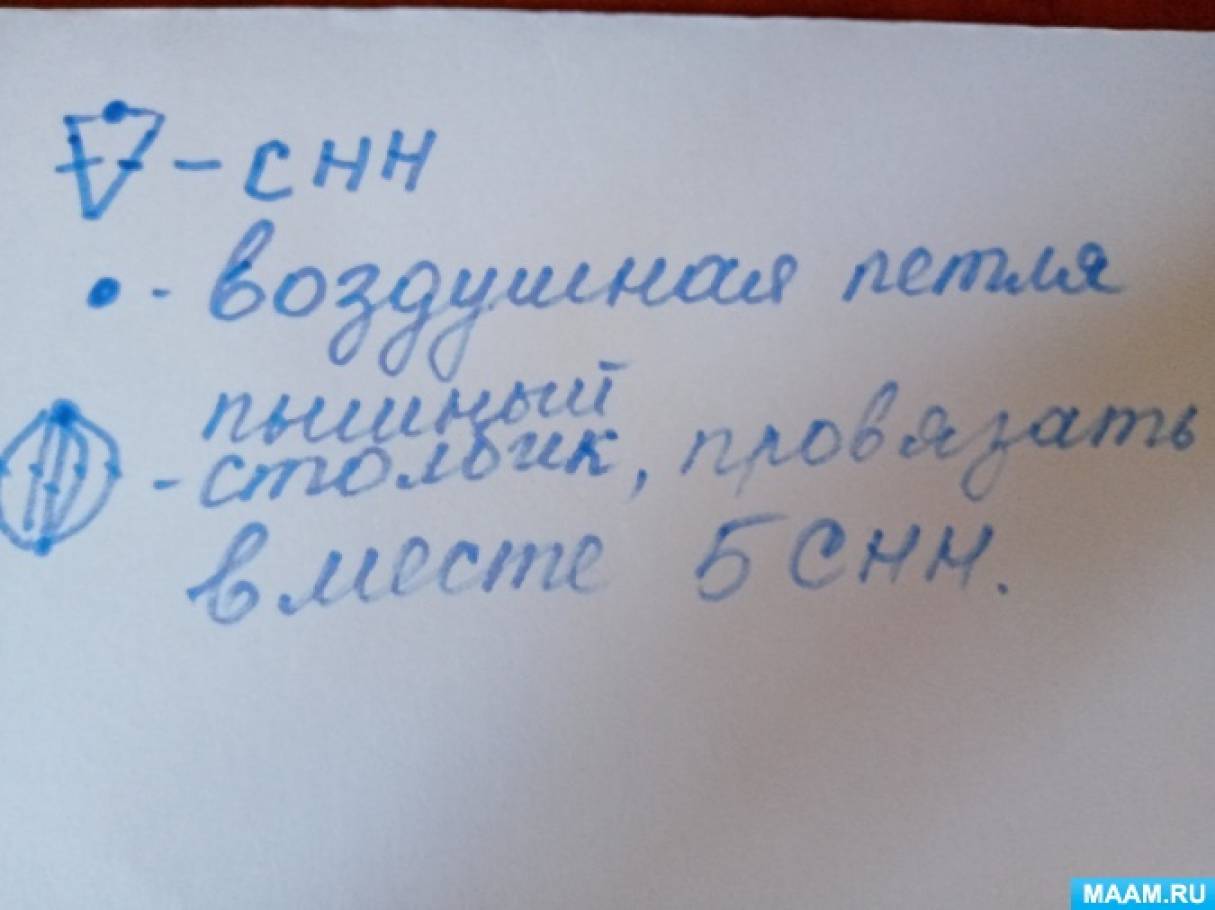 - СНН
- воздушная петля
пышный
- столбик, провязать
вместе 5 СНН.
MAAM.RU